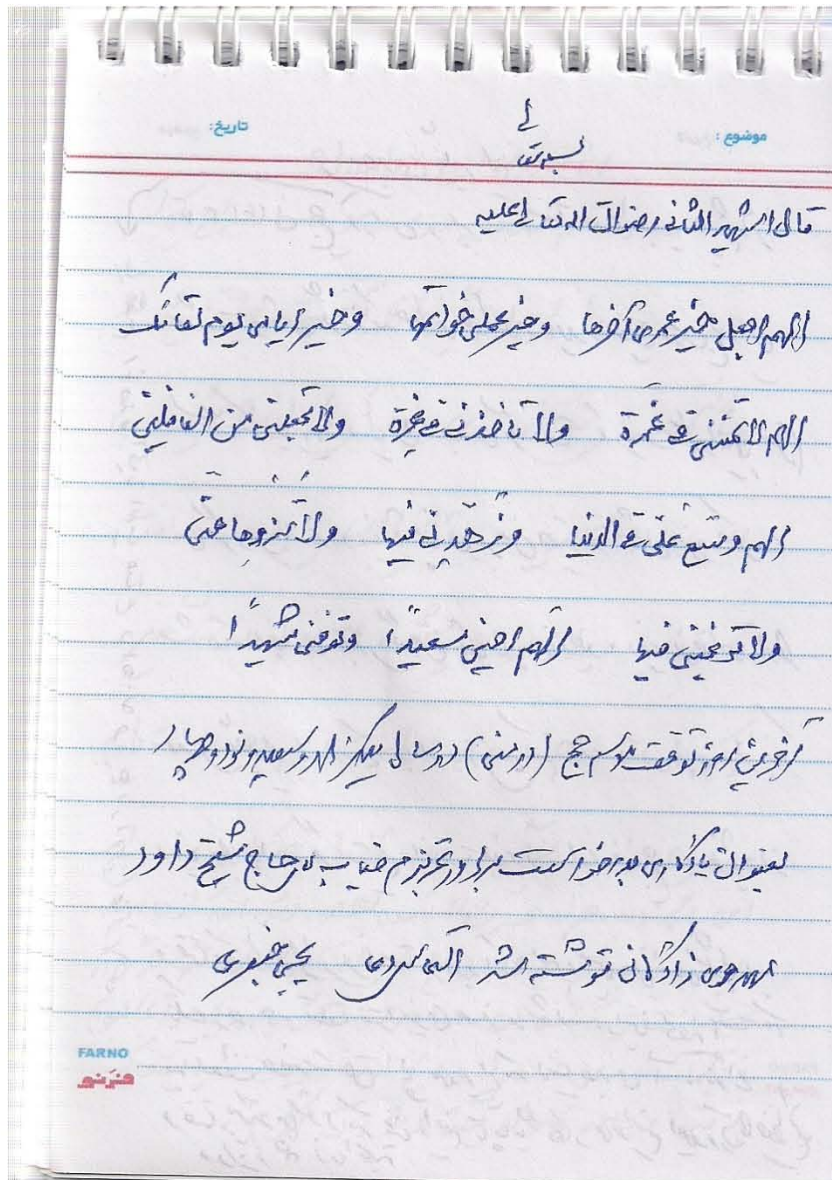 موضوع :
تاریخ:
بسمه تعالی
قال الشهید الثانی رضوان الله تعالی علیه
اللهم اجعل خیر عمری آخرها و خیر عملی خواتمها و خیر ایامی یوم لقائک
اللهم لا تمتنی فی غمرة ولا تأخذنی فی غرة ولا تجعلنی من الغافلین
اللهم وسّع علیّ فی الدنیا و زهّدنی فیها ولا تزوها عنّی
ولا ترغبنی فیها اللهم احینی سعیداً و توفنی شهیداً
آخرین روز توقف موسم حج (در منی) در سال یکهزار و سیصد و نود و چهار
بعنوان یادگاری به درخواست برادر عزیزم جناب حاج شیخ داود
مهدوی زادگانی نوشته شد یحیی جعفری
FARNO
فرنو